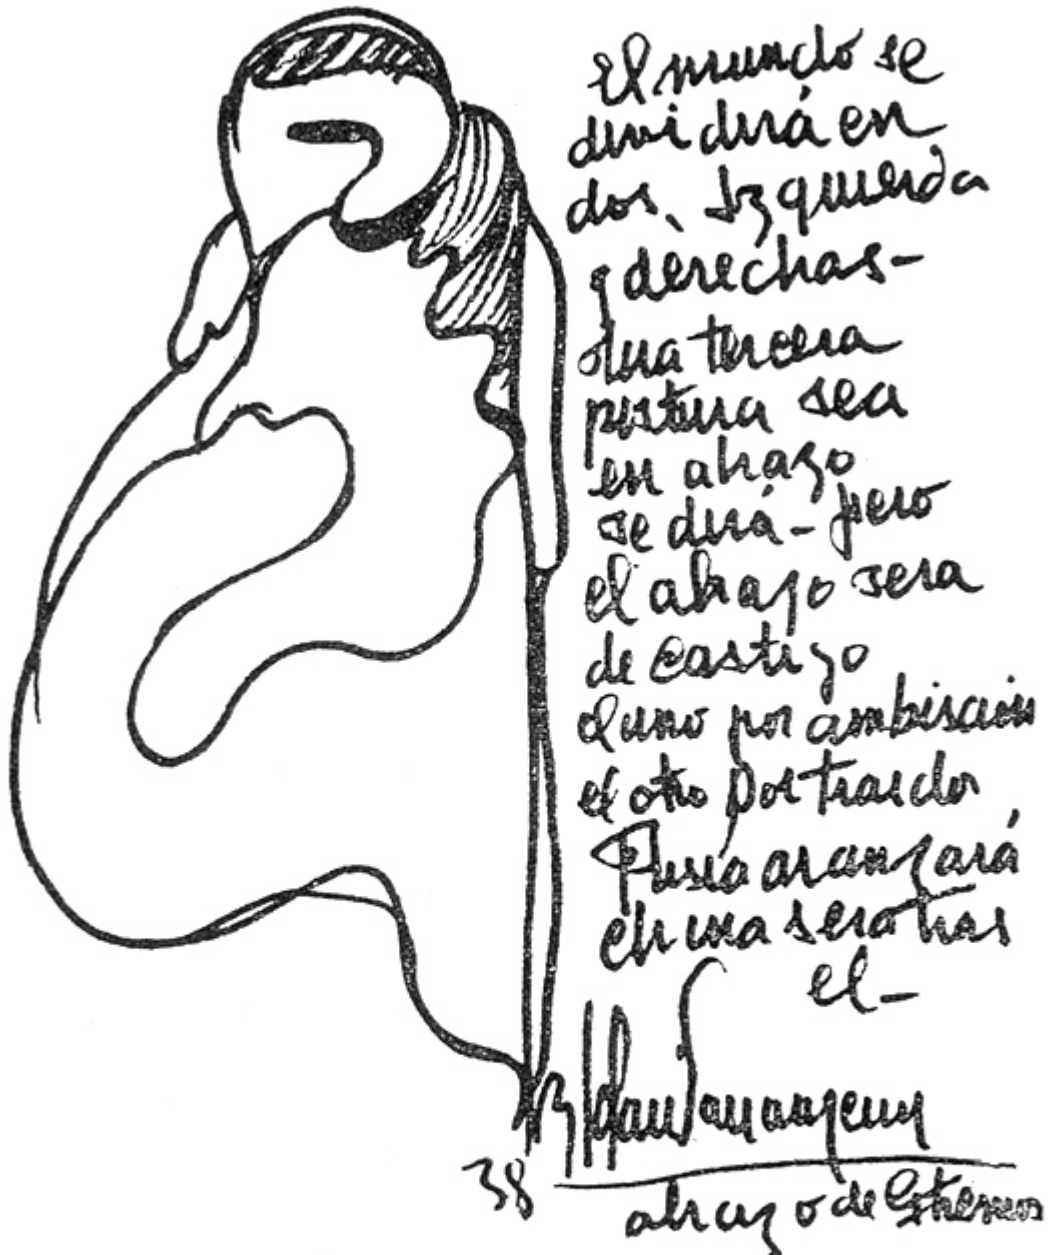 El mundo se
dividirá en
dos, Izquierda
y derechas-
Una tercera
postura sea
en abrazo
se dirá - pero
el abrazo sera
de Castigo
El uno por ambiscion
el otro por traidor
Rusia avanzará
en una sera tras
el-
B. Solari Parravicini
38
abrazo de Extremos